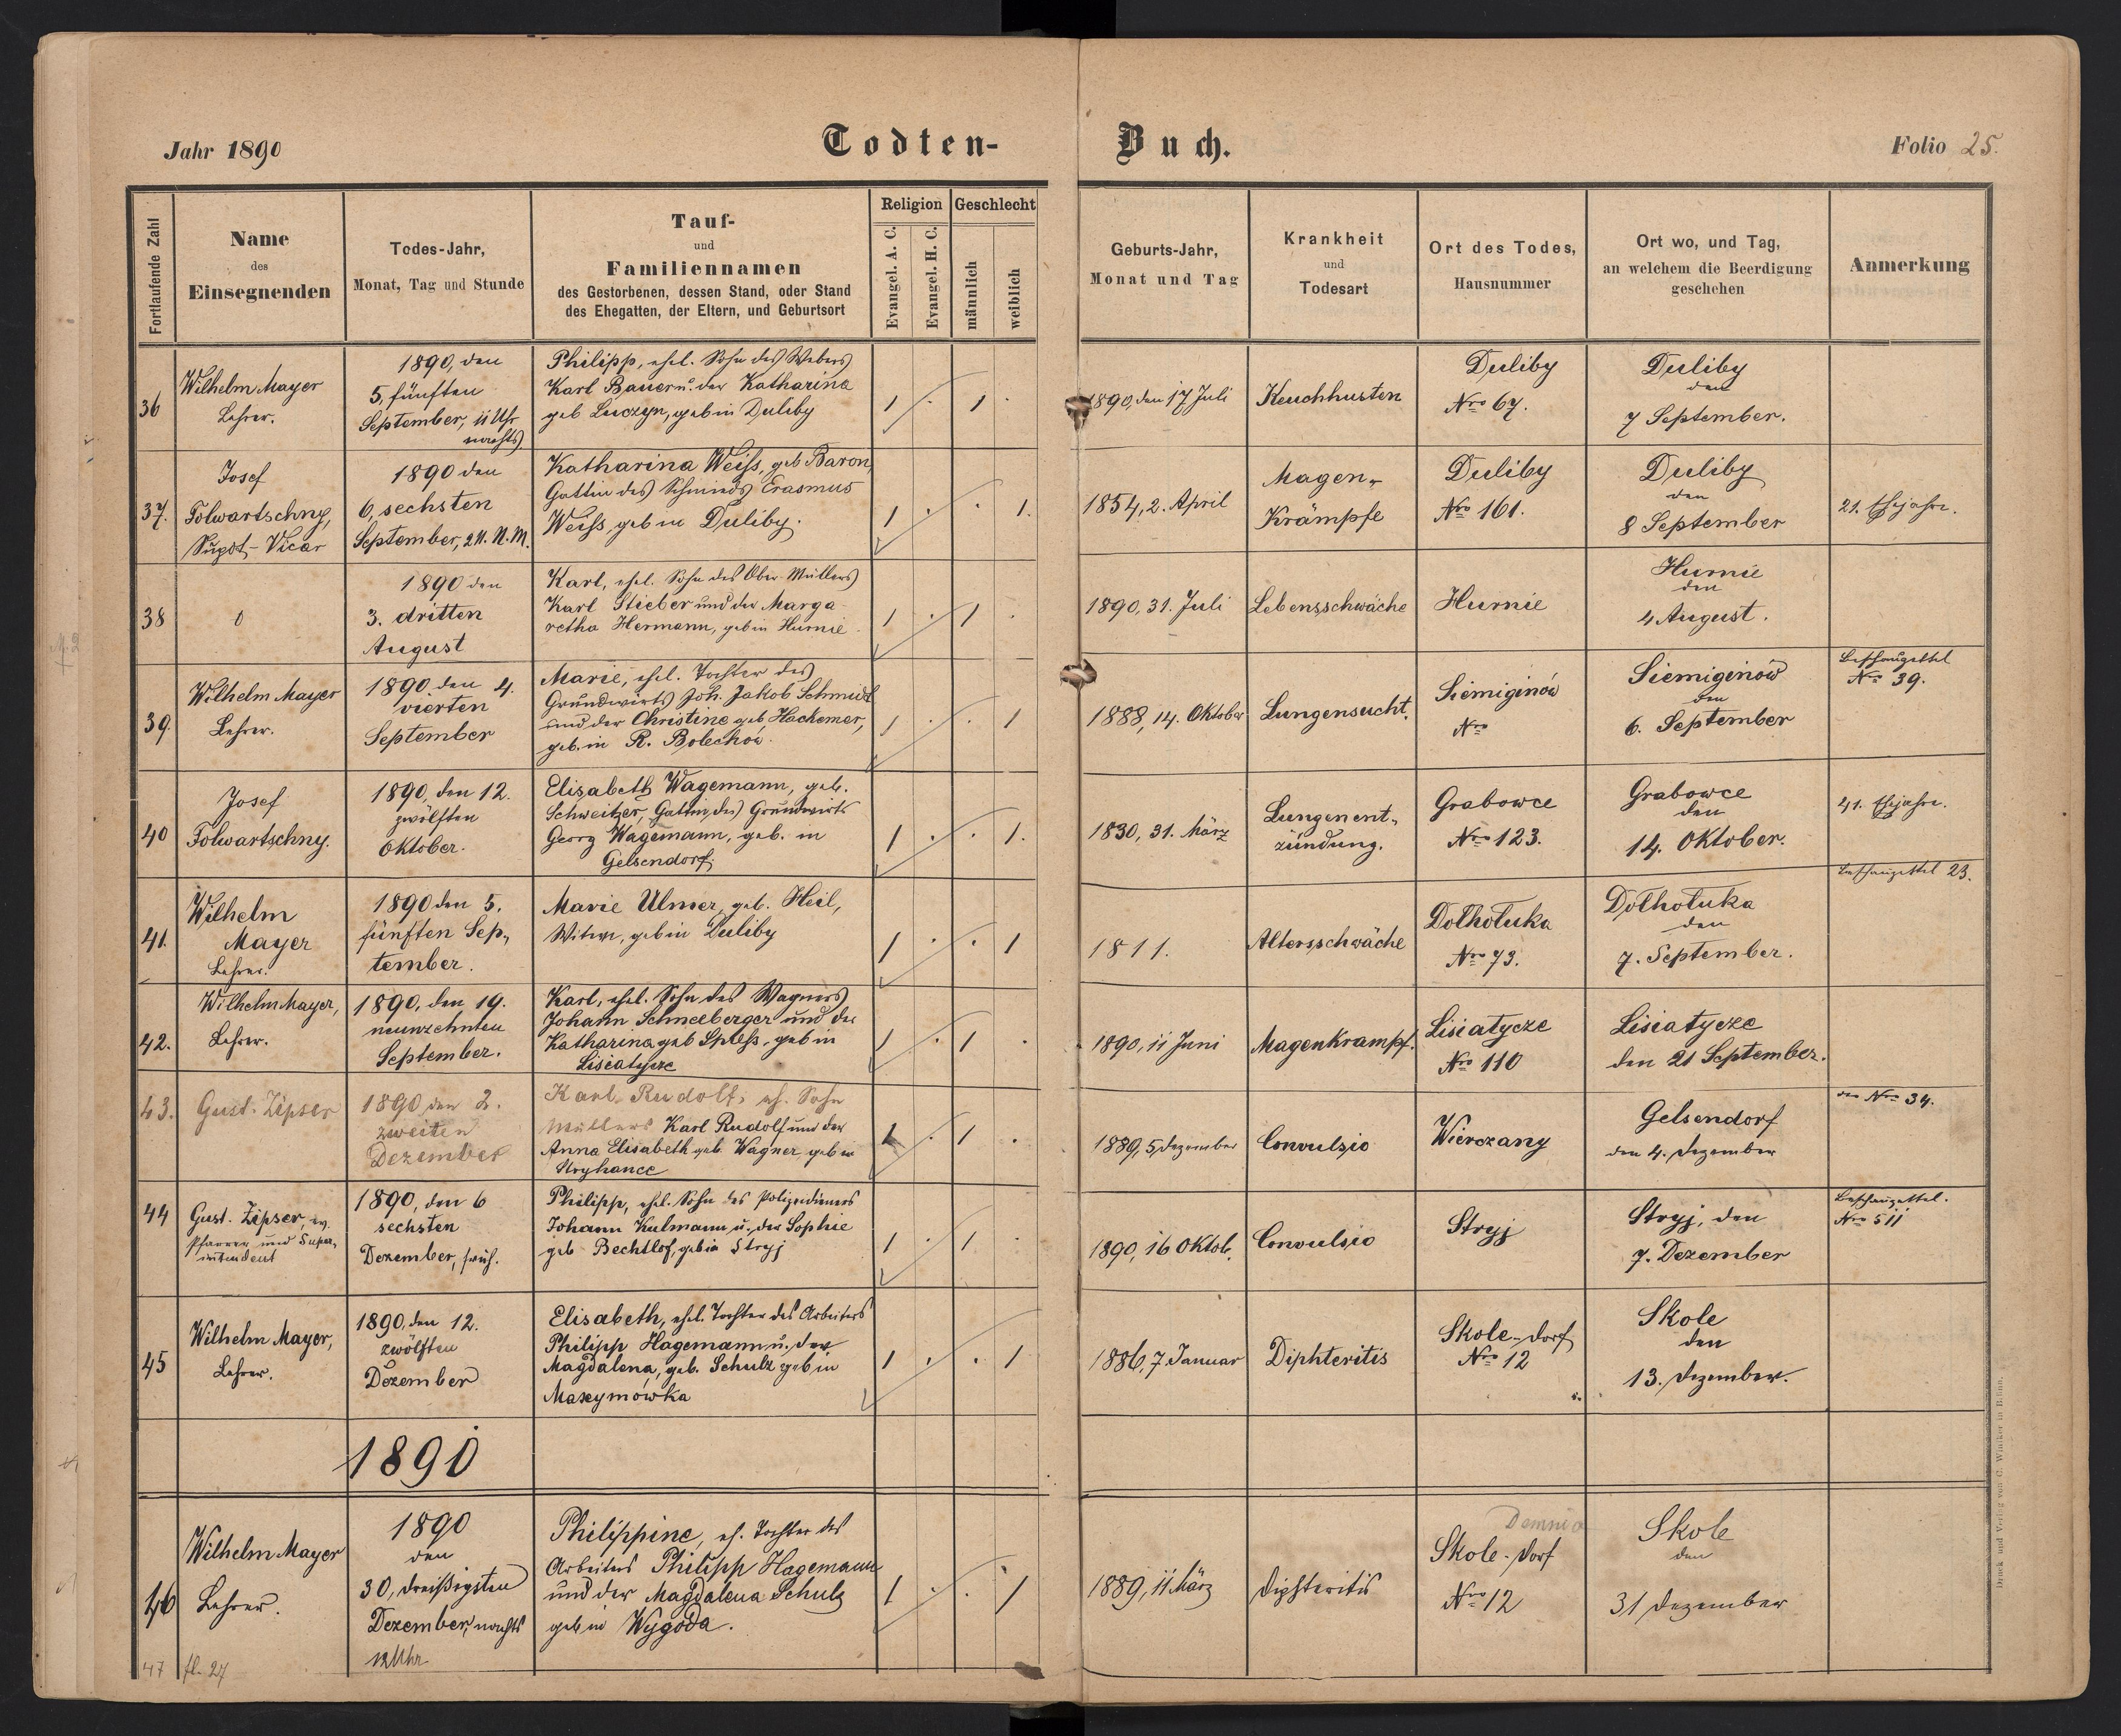 Jahr 1890
Todten-Buch.
Folio 25.
Fortlaufende Zahl
Name
des
Einsegnenden
Todes-Jahr,
Monat, Tag und Stunde
Tauf-
und
Familiennamen
des Gestorbenen, dessen Stand, oder Stand
des Ehegatten, der Eltern, und Geburtsort
Religion
Evangel. A. C.
Evangel. H. C.
Geschlecht
männlich
weiblich
Geburts-Jahr,
Monat und Tag
Krankheit
und
Todesart
Ort des Todes,
Hausnummer
Ort wo, und Tag,
an welchem die Beerdigung
geschehen
Anmerkung
36
Wilhelm Mayer
Lehrer.
1890, den
5, fünften
September, 11 Uhr
nachts
Philipp, ehel. Sohn des Webers
Karl Bauer u. der Katharina
geb Luczyn, geb in Duliby
1 . 1 .
1890, den 17 Juli
Keuchhusten
Duliby
Nro 67.
Duliby
den
7 September.
37.
Josef
Folwartschny,
Supdt-Vicar
1890 den
6, sechsten
September, 2 U. N. M.
Katharina Weiss, geb Baron,
Gattin des Schmieds Erasmus
Weiss, geb in Duliby.
1 . . 1.
1854, 2. April
Magen-
Krämpfe
Duliby
Nro 161.
Duliby
den
8 September
21. Ehejahre.
38
0
1890 den
3. dritten
August
Karl, ehel. Sohn des Ober-Müllers
Karl Stieber und der Marga
retha Hermann, geb in Hurnie
1 . 1 .
1890, 31. Juli
Lebensschwäche
Hurnie
Hurnie
den
4 August.
39.
Wilhelm Mayer
Lehrer.
1890 den 4.
vierten
September
Marie, ehel. Tochter des
Grundwirts Joh. Jakob Schmidt
und der Christine geb Hackemer,
geb. in R. Bolechów
1 . . 1
1888, 14. Oktober
Lungensucht.
Siemiginów
Nro
Siemiginów
den
6. September
Beschauzettel
Nro 39.
40
Josef
Folwartschny.
1890, den 12.
zwölften
Oktober.
Elisabeth Wagemann, geb.
Schweitzer, Gattin des Grundwirts
Georg Wagemann, geb. in
Gelsendorf.
1 . . 1.
1830, 31. März
Lungenent-
zündung.
Grabowce
Nro 123.
Grabowce
den
14. Oktober.
41. Ehejahre.
41.
Wilhelm
Mayer
Lehrer.
1890 den 5.
fünften Sep-
tember.
Marie Ulmer, geb. Heil,
Witwe, geb in Duliby
1 . . 1
1811.
Altersschwäche
Dołhołuka
Nro 73.
Dołhołuka
den
7. September.
Beschauzettel 23.
42.
Wilhelm Mayer,
Lehrer.
1890, den 19.
neunzehnten
September.
Karl, ehel. Sohn des Wagners
Johann Schneeberger und der
Katharina geb Spiess, geb in
Lisiatycze
1 . 1 .
1890, 11 Juni
Magenkrampf.
Lisiatycze
Nro 110
Lisiatycze
den 21 September.
43.
Gust. Zipser
1890 den 2.
zweiten
Dezember
Karl Rudolf, eh. Sohn
Müllers Karl Rudolf und der
Anna Elisabeth geb Wagner geb in
Uryhance
1 . 1 .
1889, 5 Dezember
Convulsio
Wierczany
Gelsendorf
den 4. Dezember
Nro 34.
44
Gust. Zipser, ev.
Pfarrer und Super-
intendent
1890, den 6
sechsten
Dezember, früh.
Philipp, ehel. Sohn des Polizeidieners
Johann Kulmann u. der Sophie
geb Bechtlof, geb in Stryj
1 . 1 .
1890, 16 Oktob.
Convulsio
Stryj
Stryj, den
7. Dezember
Beschauzettel.
Nro 511
45
Wilhelm Mayer,
Lehrer.
1890, den 12.
zwölften
Dezember
Elisabeth, ehel. Tochter des Arbeiters
Philipp Hagemann u. der
Magdalena, geb. Schulz geb in
Maxymówka
1 . . 1
1886, 7. Januar
Diphteritis
Skole-Dorf
Nro 12
Skole
den
13. Dezember.
1890
46
Wilhelm Mayer
Lehrer.
1890
den
30, dreißigsten
Dezember, nachts
12 Uhr
Philippine, eh. Tochter des
Arbeiters Philipp Hagemann
und der Magdalena Schulz
geb in Wygoda.
1 . . 1
1889, 11 März
Diphteritis
Demnia
Skole-Dorf
Nro 12
Skole
den
31 Dezember
47
fl. 27
Druck und Verlag von C. Winiker in Brünn.